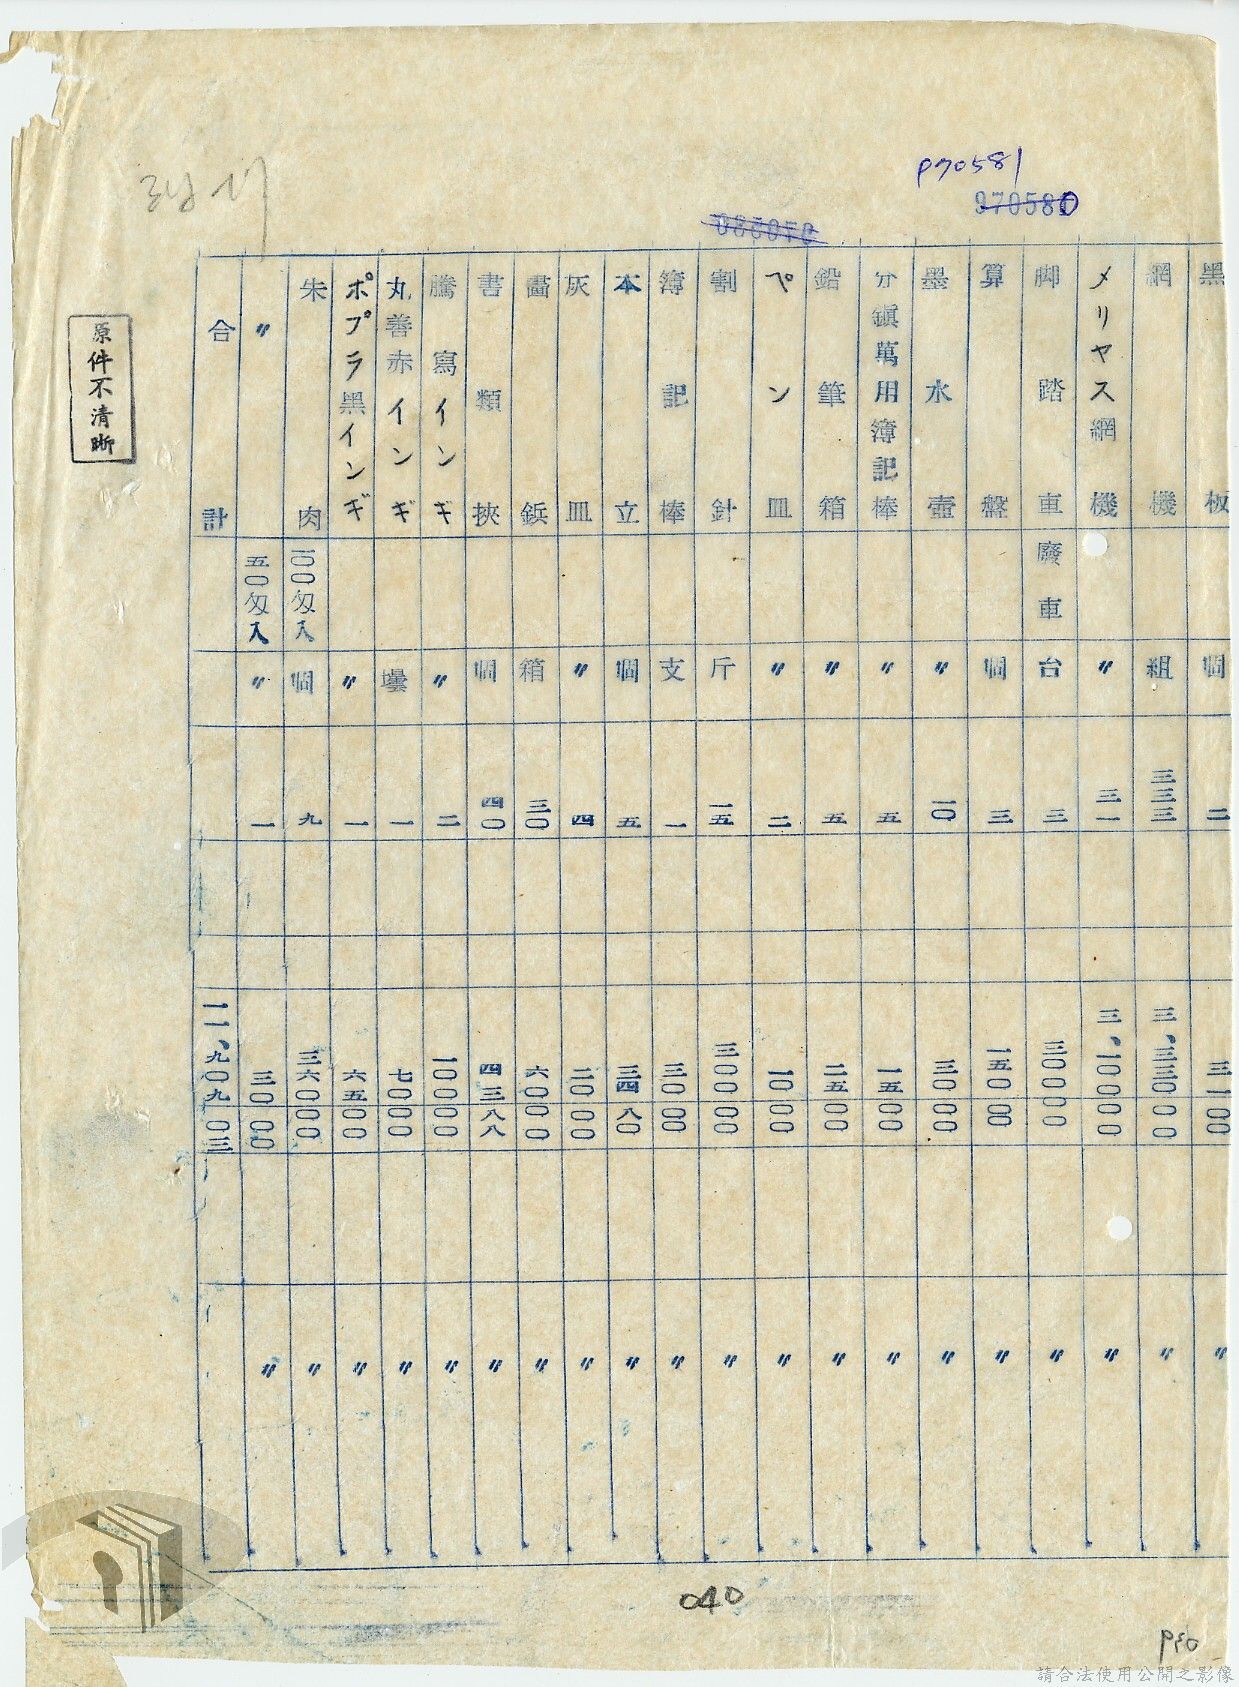 P70581
黑板 個 二 三一 〇〇
網機 組 三三三 三、三三〇 〇〇
メリヤス網機 〃 三一 三、一〇〇 〇〇 〃
脚踏車 廢車 台 三 三〇〇 〇〇 〃
算盤 個 三 一五〇 〇〇 〃
墨水壷 〃 一〇 三〇 〇〇 〃
分鎭萬用簿記棒 〃 五 一五 〇〇 〃
鉛筆箱 〃 五 二五 〇〇 〃
ペン皿 〃 二 一〇 〇〇 〃
割針 斤 一五 三〇〇 〇〇 〃
簿記棒 支 一 三〇 〇〇 〃
本立 個 五 三四 八〇 〃
灰皿 〃 四 二〇 〇〇 〃
畵鋲 箱 三〇 六〇 〇〇 〃
書類挾 個 四〇 四三 八八 〃
騰寫インギ 〃 二 一〇〇 〇〇 〃
丸善赤インギ 壜 一 七〇 〇〇 〃
ポプラ黑インギ 〃 一 六五 〇〇 〃
朱肉 一〇〇匁入 個 九 三六〇 〇〇 〃
〃 五〇匁入 〃 一 三〇 〇〇 〃
合計 一一、九〇九 〇三
原件不清晰
040
P40
請合法使用公開之影像